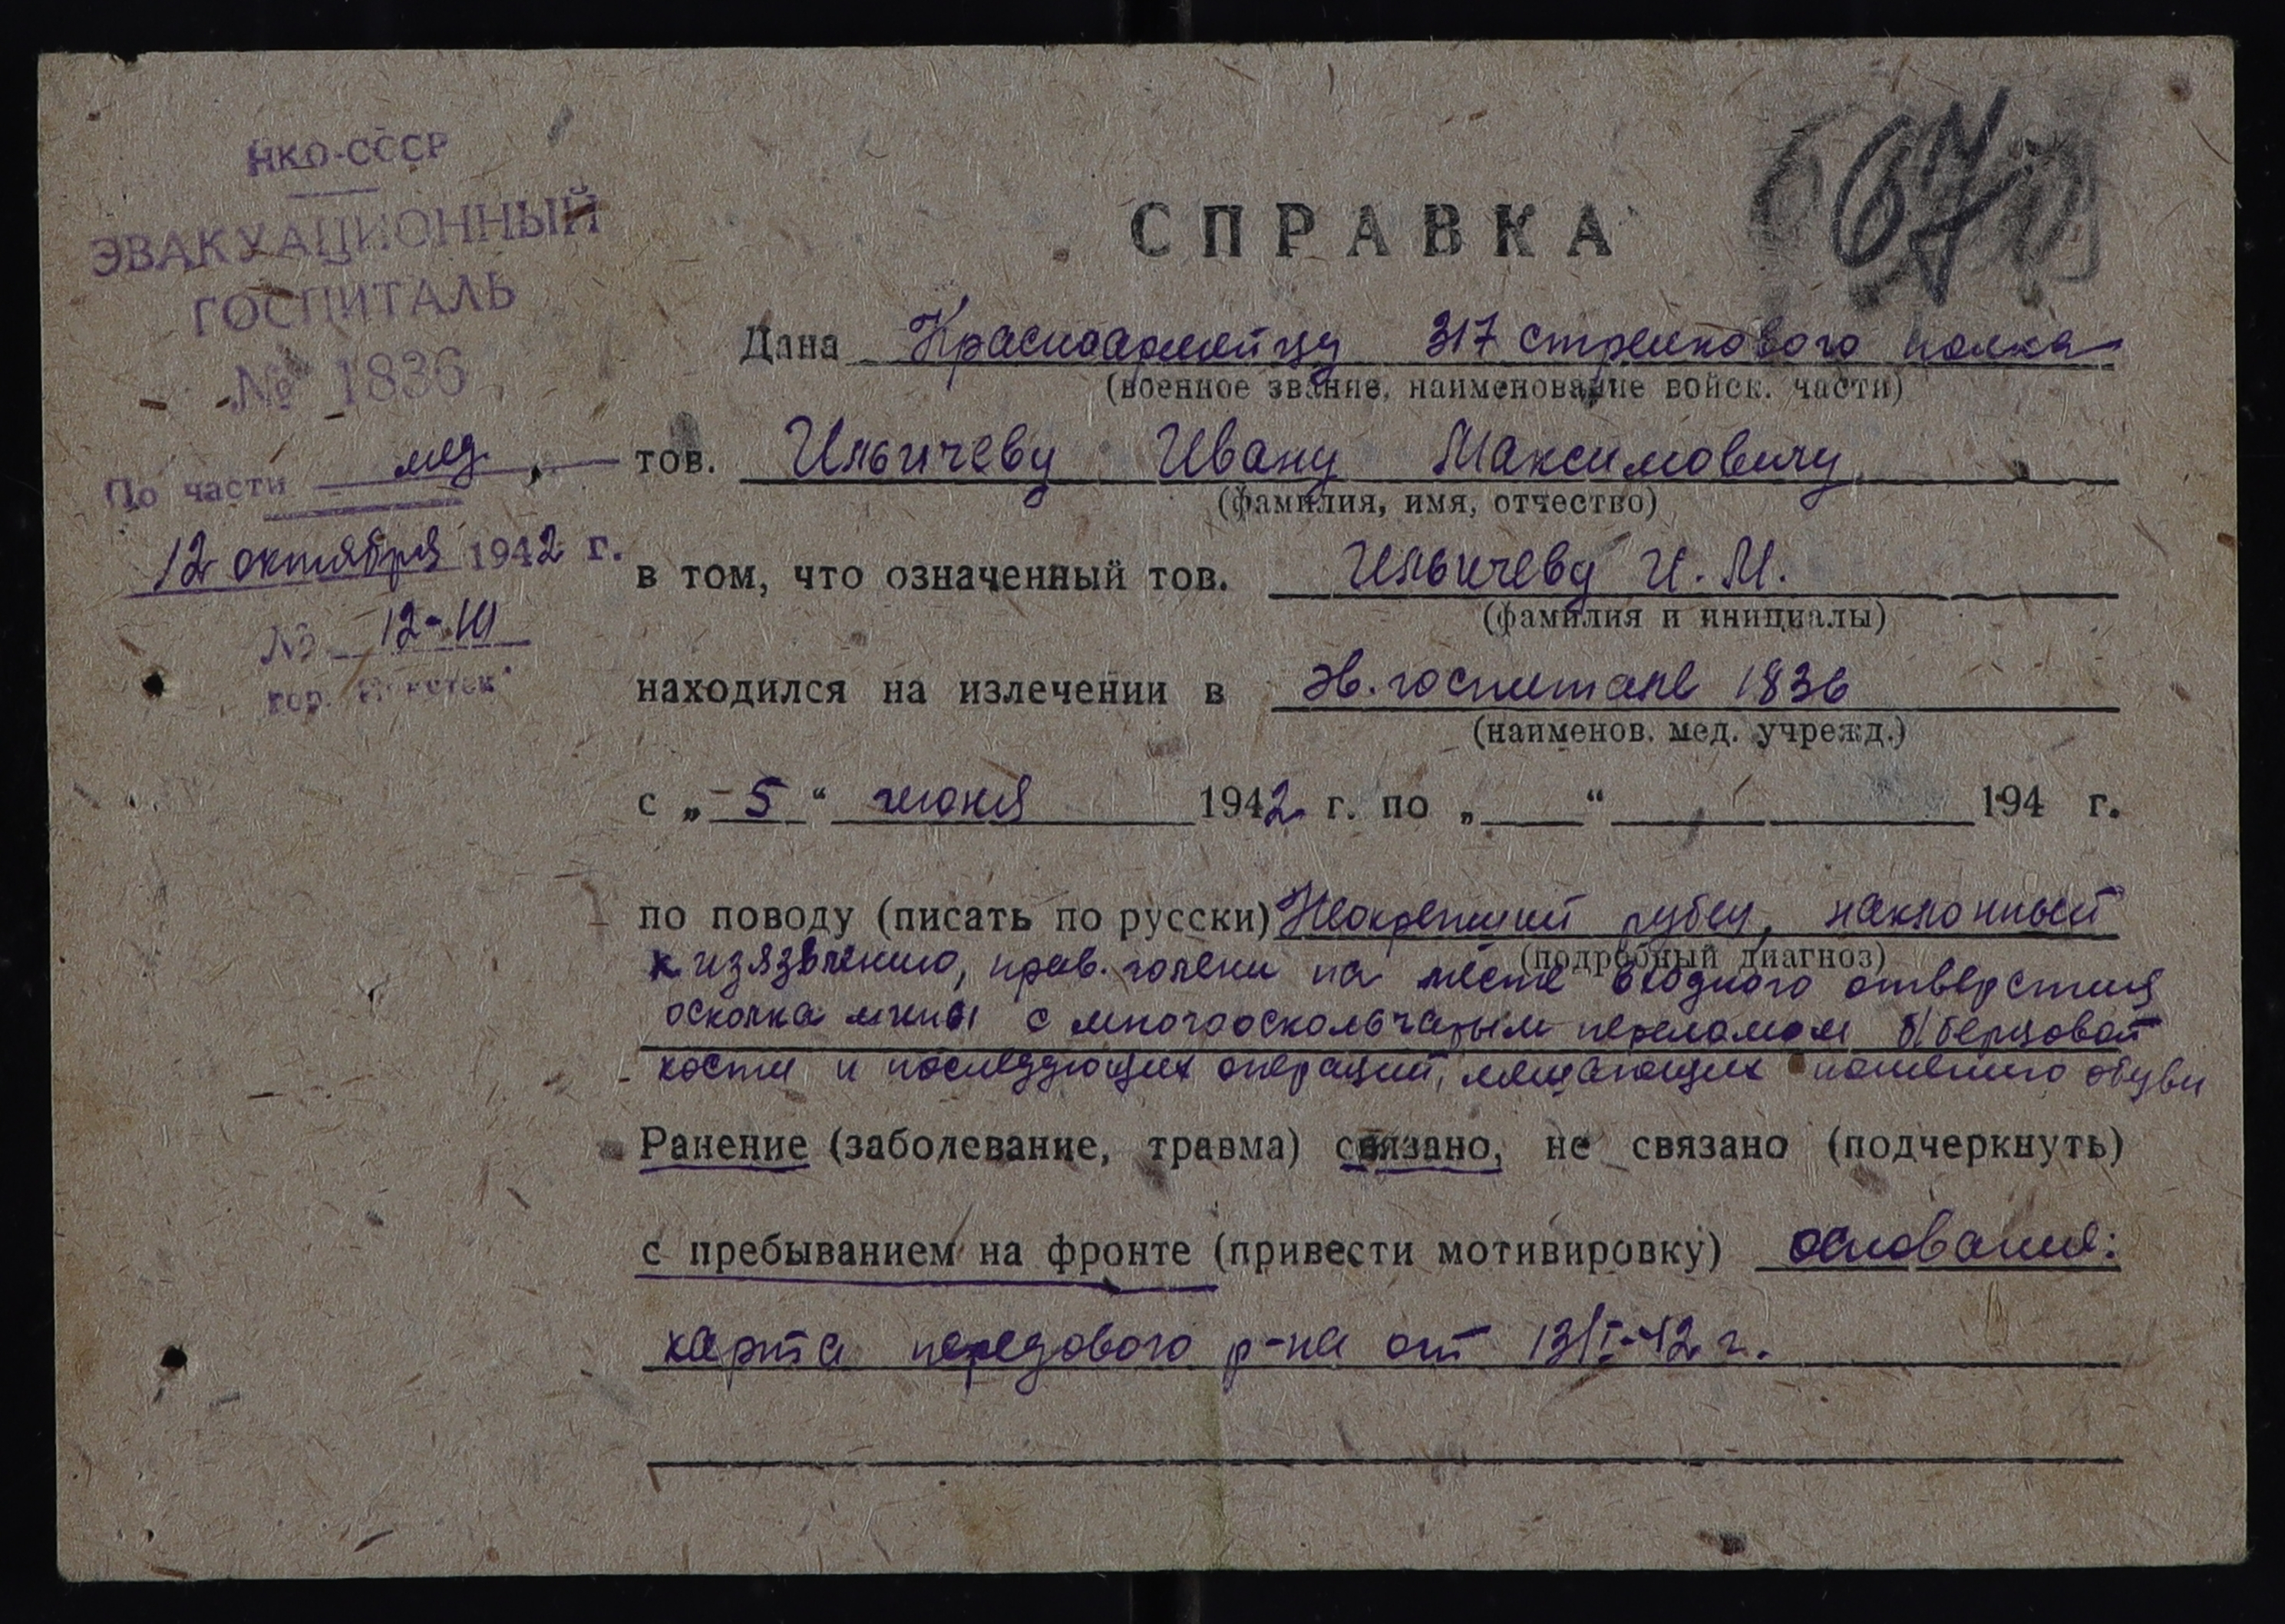 НКО-СССР
ЭВАКУАЦИОННЫЙ
ГОСПИТАЛЬ
№ 1836
По части мед.
12 октября 1942 г.
№ 12-
гор.
670
СПРАВКА
Дана Красноармейцу 317 стрелкового полка
(военное звание, наименование войск. части)
тов. Ильичеву Ивану Максимовичу
(фамилия, имя, отчество)
в том, что означенный тов. Ильичеву И. М.
(фамилия и инициалы)
находился на излечении в эв. госпитале 1836
(наименов. мед. учрежд.)
с „5“ июня 1942 г. по „ “ 194 г.
по поводу (писать по русски) Неокрепший рубец, наклонный
(подробный диагноз)
к изязвлению, прав. голени на месте входного отверстия
осколка мины с многооскольчатым переломом б/берцовой
кости и последующих операций, мешающих ношению обуви
Ранение (заболевание, травма) связано, не связано (подчеркнуть)
с пребыванием на фронте (привести мотивировку) основание:
карта передового р-на от 13/I-42 г.